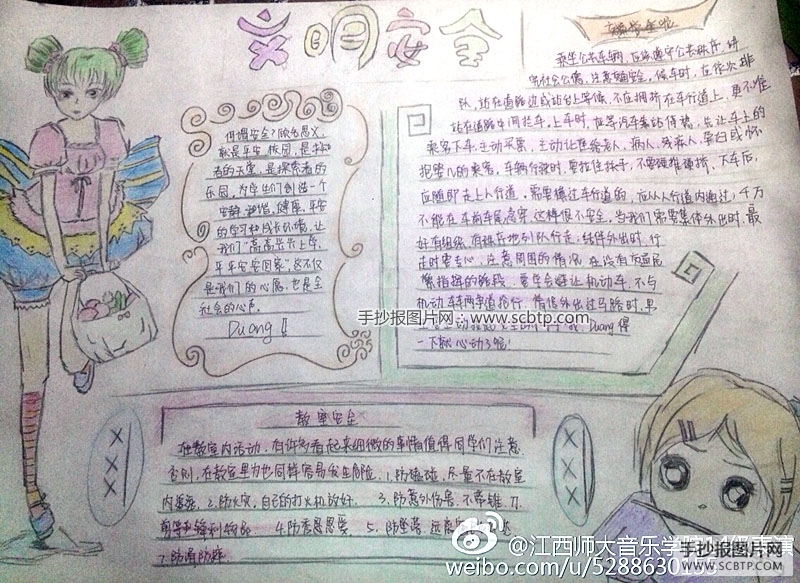 文明安全
何谓安全?顾名思义,
就是平安校园,是求知
者的天堂,是探索者的
乐园,为学生们创造一个
安静,健康,平安
的学习和成长环境,让
我们"高高兴兴上学,
平平安安回家",这不仅
是我们的心愿,也是全
社会的心声。
Duang!!
乘坐公共车辆,应该遵守公共秩序,讲
究社会公德,注意安全,候车时,应依次排
队,站在道路边或站台上等候,不应拥挤在车行道上,更不准
站在道路中间拦车,上车时,应等汽车靠站停稳,先让车上的
乘客下车,主动买票,主动让座给老人、病人、残疾人、孕妇或怀
抱婴儿的乘客,车辆行驶时,要拉住扶手,不要,下车后,
应随即走上人行道,需要横过车行道的,应从人行道内通过,千万
不能在车前车尾急穿,这样很不安全,当我们需要集体外出时,最
好有组织,有秩序地列队行走;结伴外出时,行
走时要专心,注意周围的情况,在没有交通民
警指挥的路段,要学会避让机动车,不与
机动车辆争道抢行,
Duang得
一下就心动了呢!
手抄报图片网:www.scbtp.com
教室安全
在教室内活动,有许多看起来细微的事情值得同学们注意
否则,在教室里力也同样容易发生危险,1.防磕碰,尽量不在教室
内 2.防火灾,自己的打火机放好。 3.防意外伤害,不带锥、刀、
剪等尖锐利物品 4. 5.防坠落,
7.防滑防跌
XXX
XXX
@江西师大音乐学
weibo.com/u/5288630
手抄报图片网
WWW.SCBTP.COM